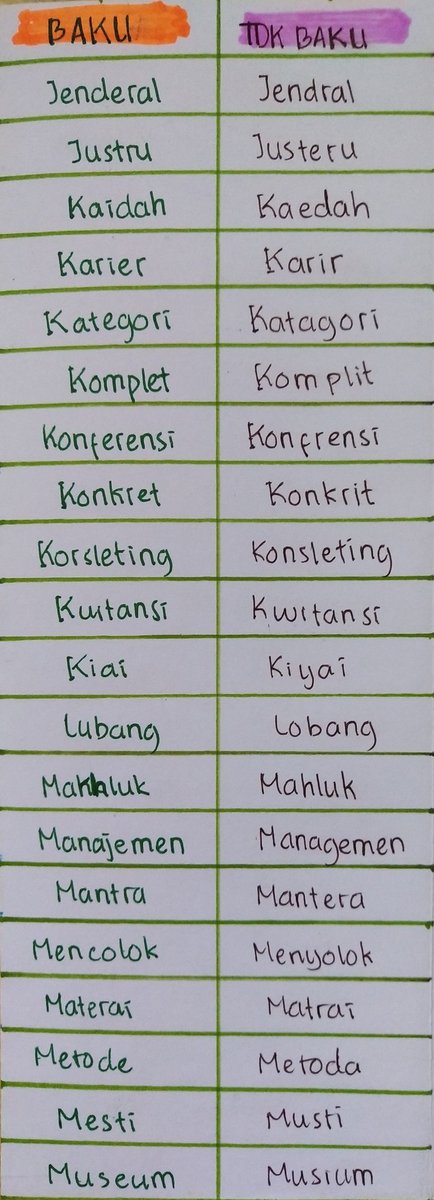 BAKU TDK BAKU
Jenderal Jendral
Justru Justeru
Kaidah Kaedah
Karier Karir
Kategori Katagori
Komplet Komplit
Konferensi Konfrensi
Konkret Konkrit
Korsleting Konsleting
Kuitansi Kwitansi
Kiai Kiyai
Lubang Lobang
Makhluk Mahluk
Manajemen Managemen
Mantra Mantera
Mencolok Menyolok
Materai Matrai
Metode Metoda
Mesti Musti
Museum Musium